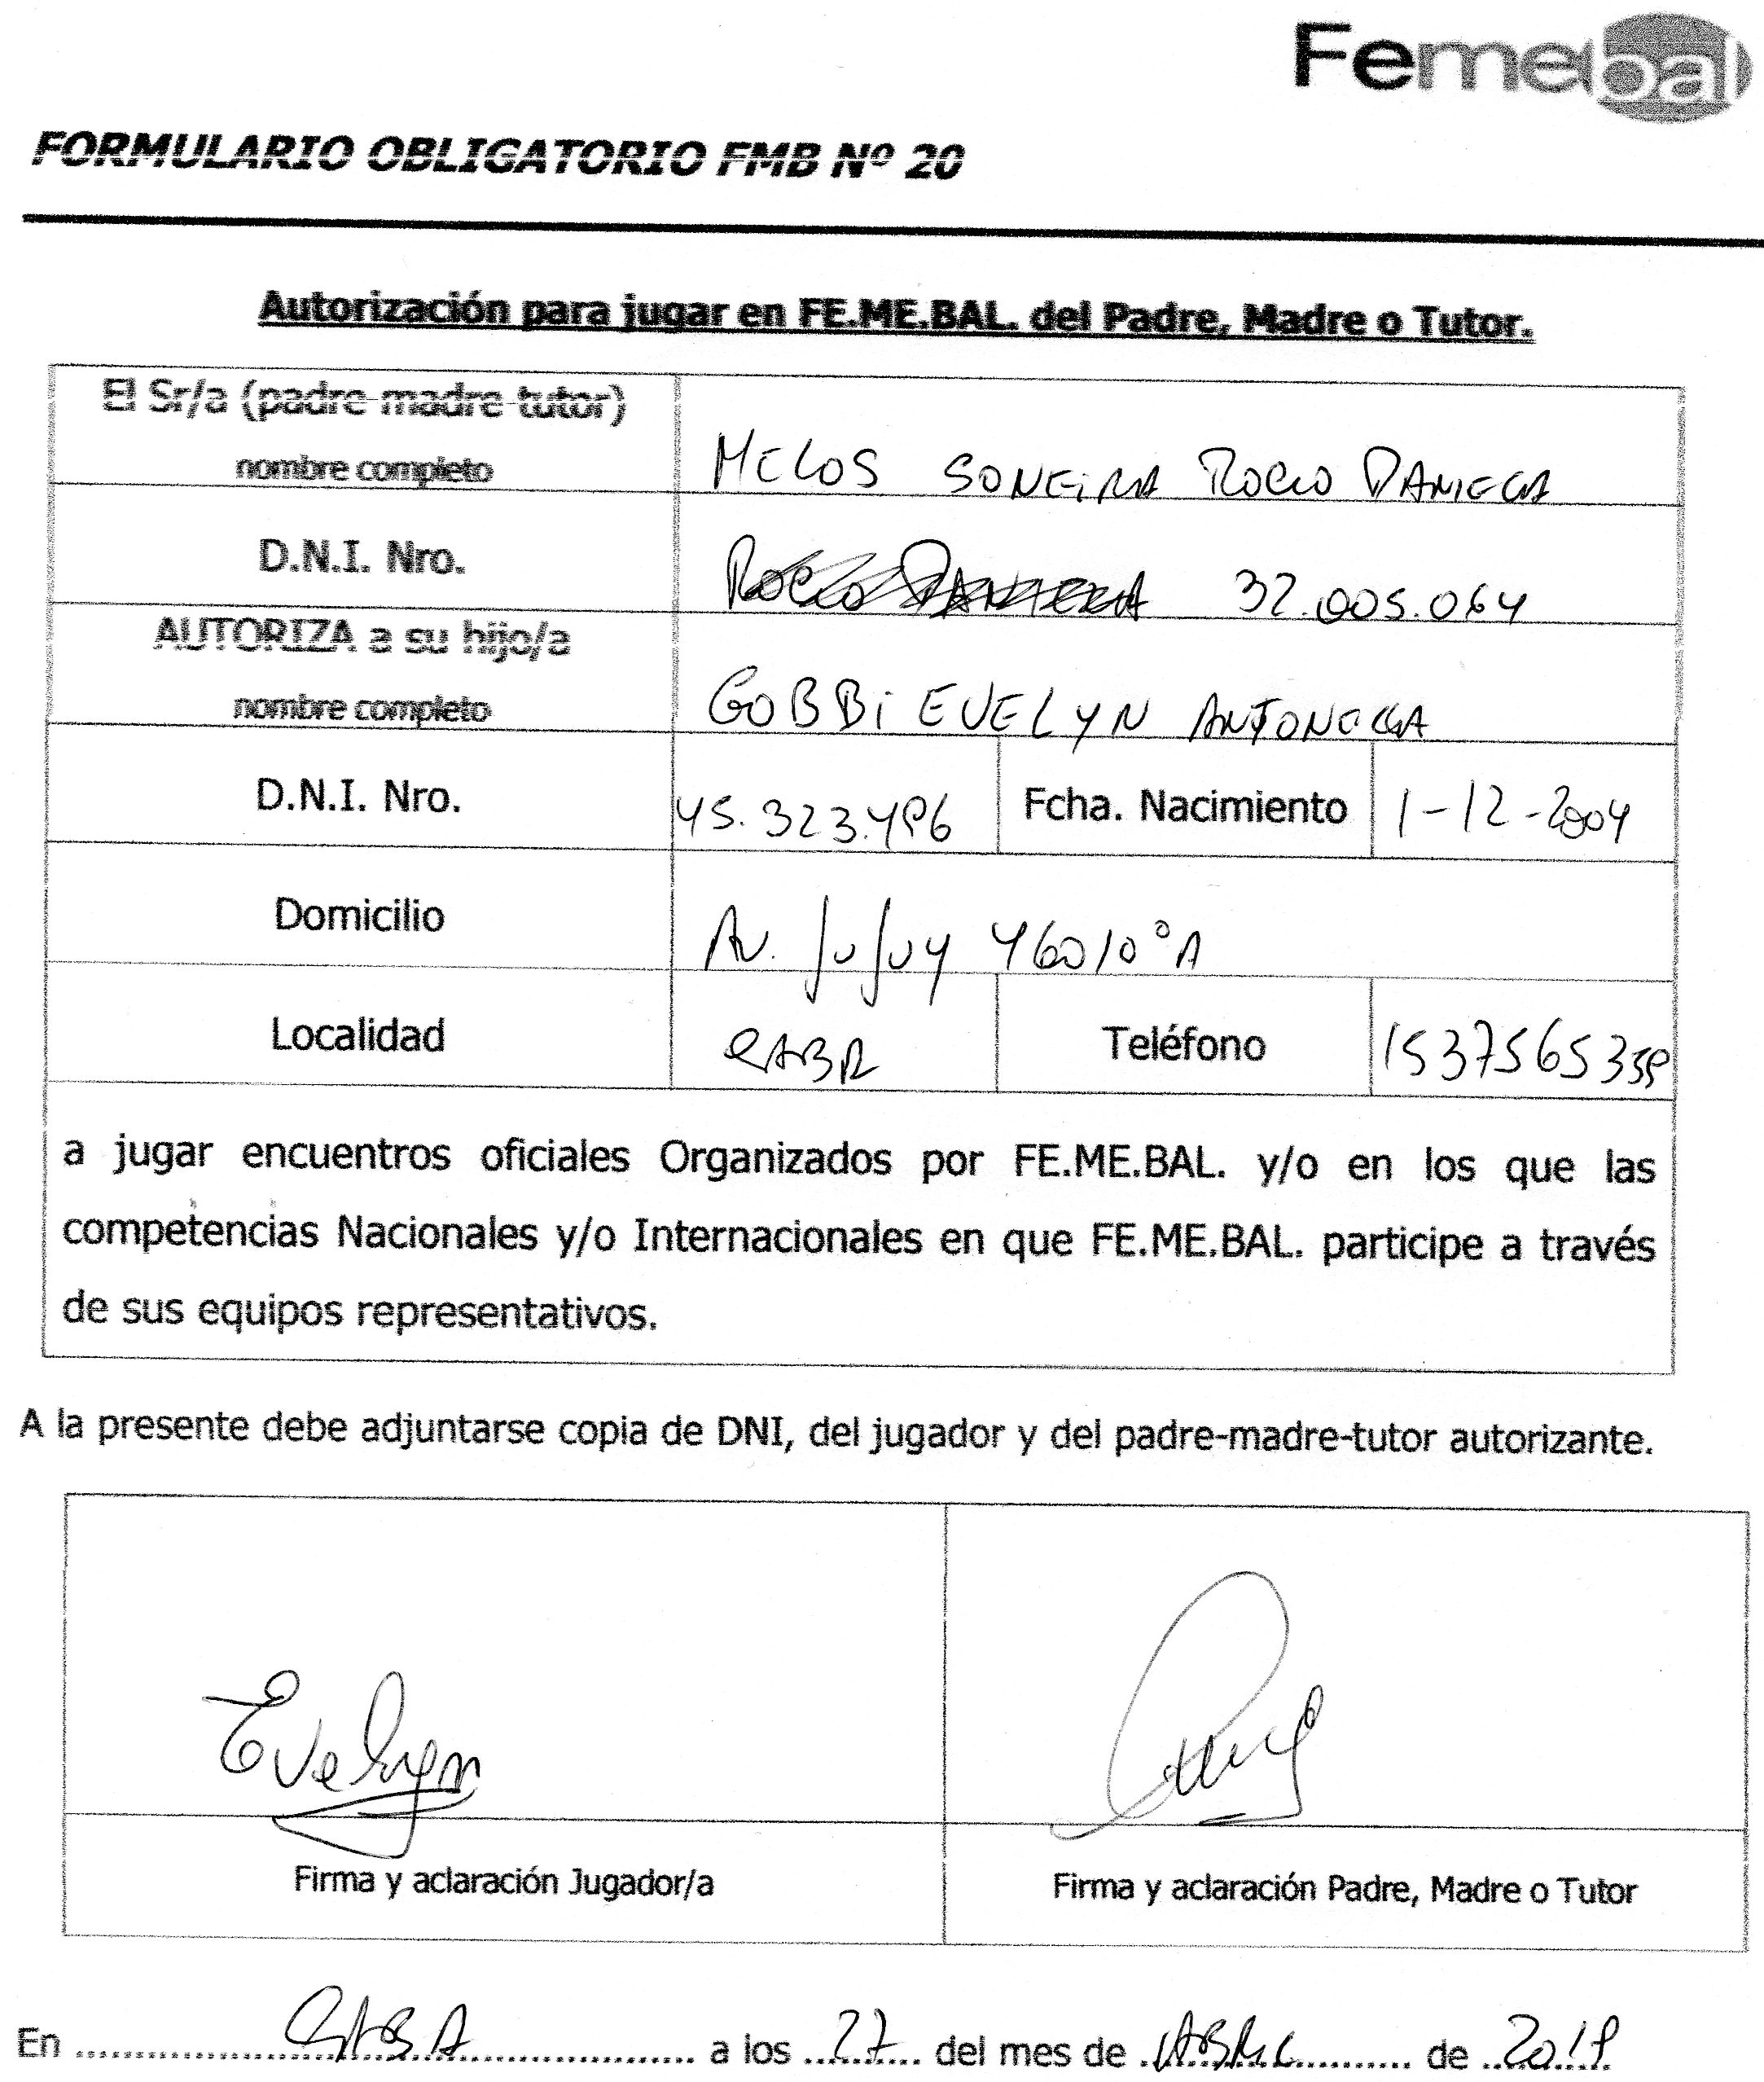 Femebal
FORMULARIO OBLIGATORIO FMB Nº 20
Autorización para jugar en FE.ME.BAL. del Padre, Madre o Tutor.
El Sr/a (padre madre tutor)
nombre completo
MELOS SONEIRA ROCIO DANIELA
D.N.I. Nro.
ROCIO DANIELA 32.005.064
AUTORIZA a su hijo/a
nombre completo
GOBBi EVELYN ANTONELLA
D.N.I. Nro.
45.323.496
Fcha. Nacimiento
1-12-2004
Domicilio
Av. Jujuy 460 10° A
Localidad
CABA
Teléfono
1537565359
a jugar encuentros oficiales Organizados por FE.ME.BAL. y/o en los que las
competencias Nacionales y/o Internacionales en que FE.ME.BAL. participe a través
de sus equipos representativos.
A la presente debe adjuntarse copia de DNI, del jugador y del padre-madre-tutor autorizante.
Evelyn
Firma y aclaración Jugador/a
Firma y aclaración Padre, Madre o Tutor
En CABA a los 27 del mes de ABRIL de 2019